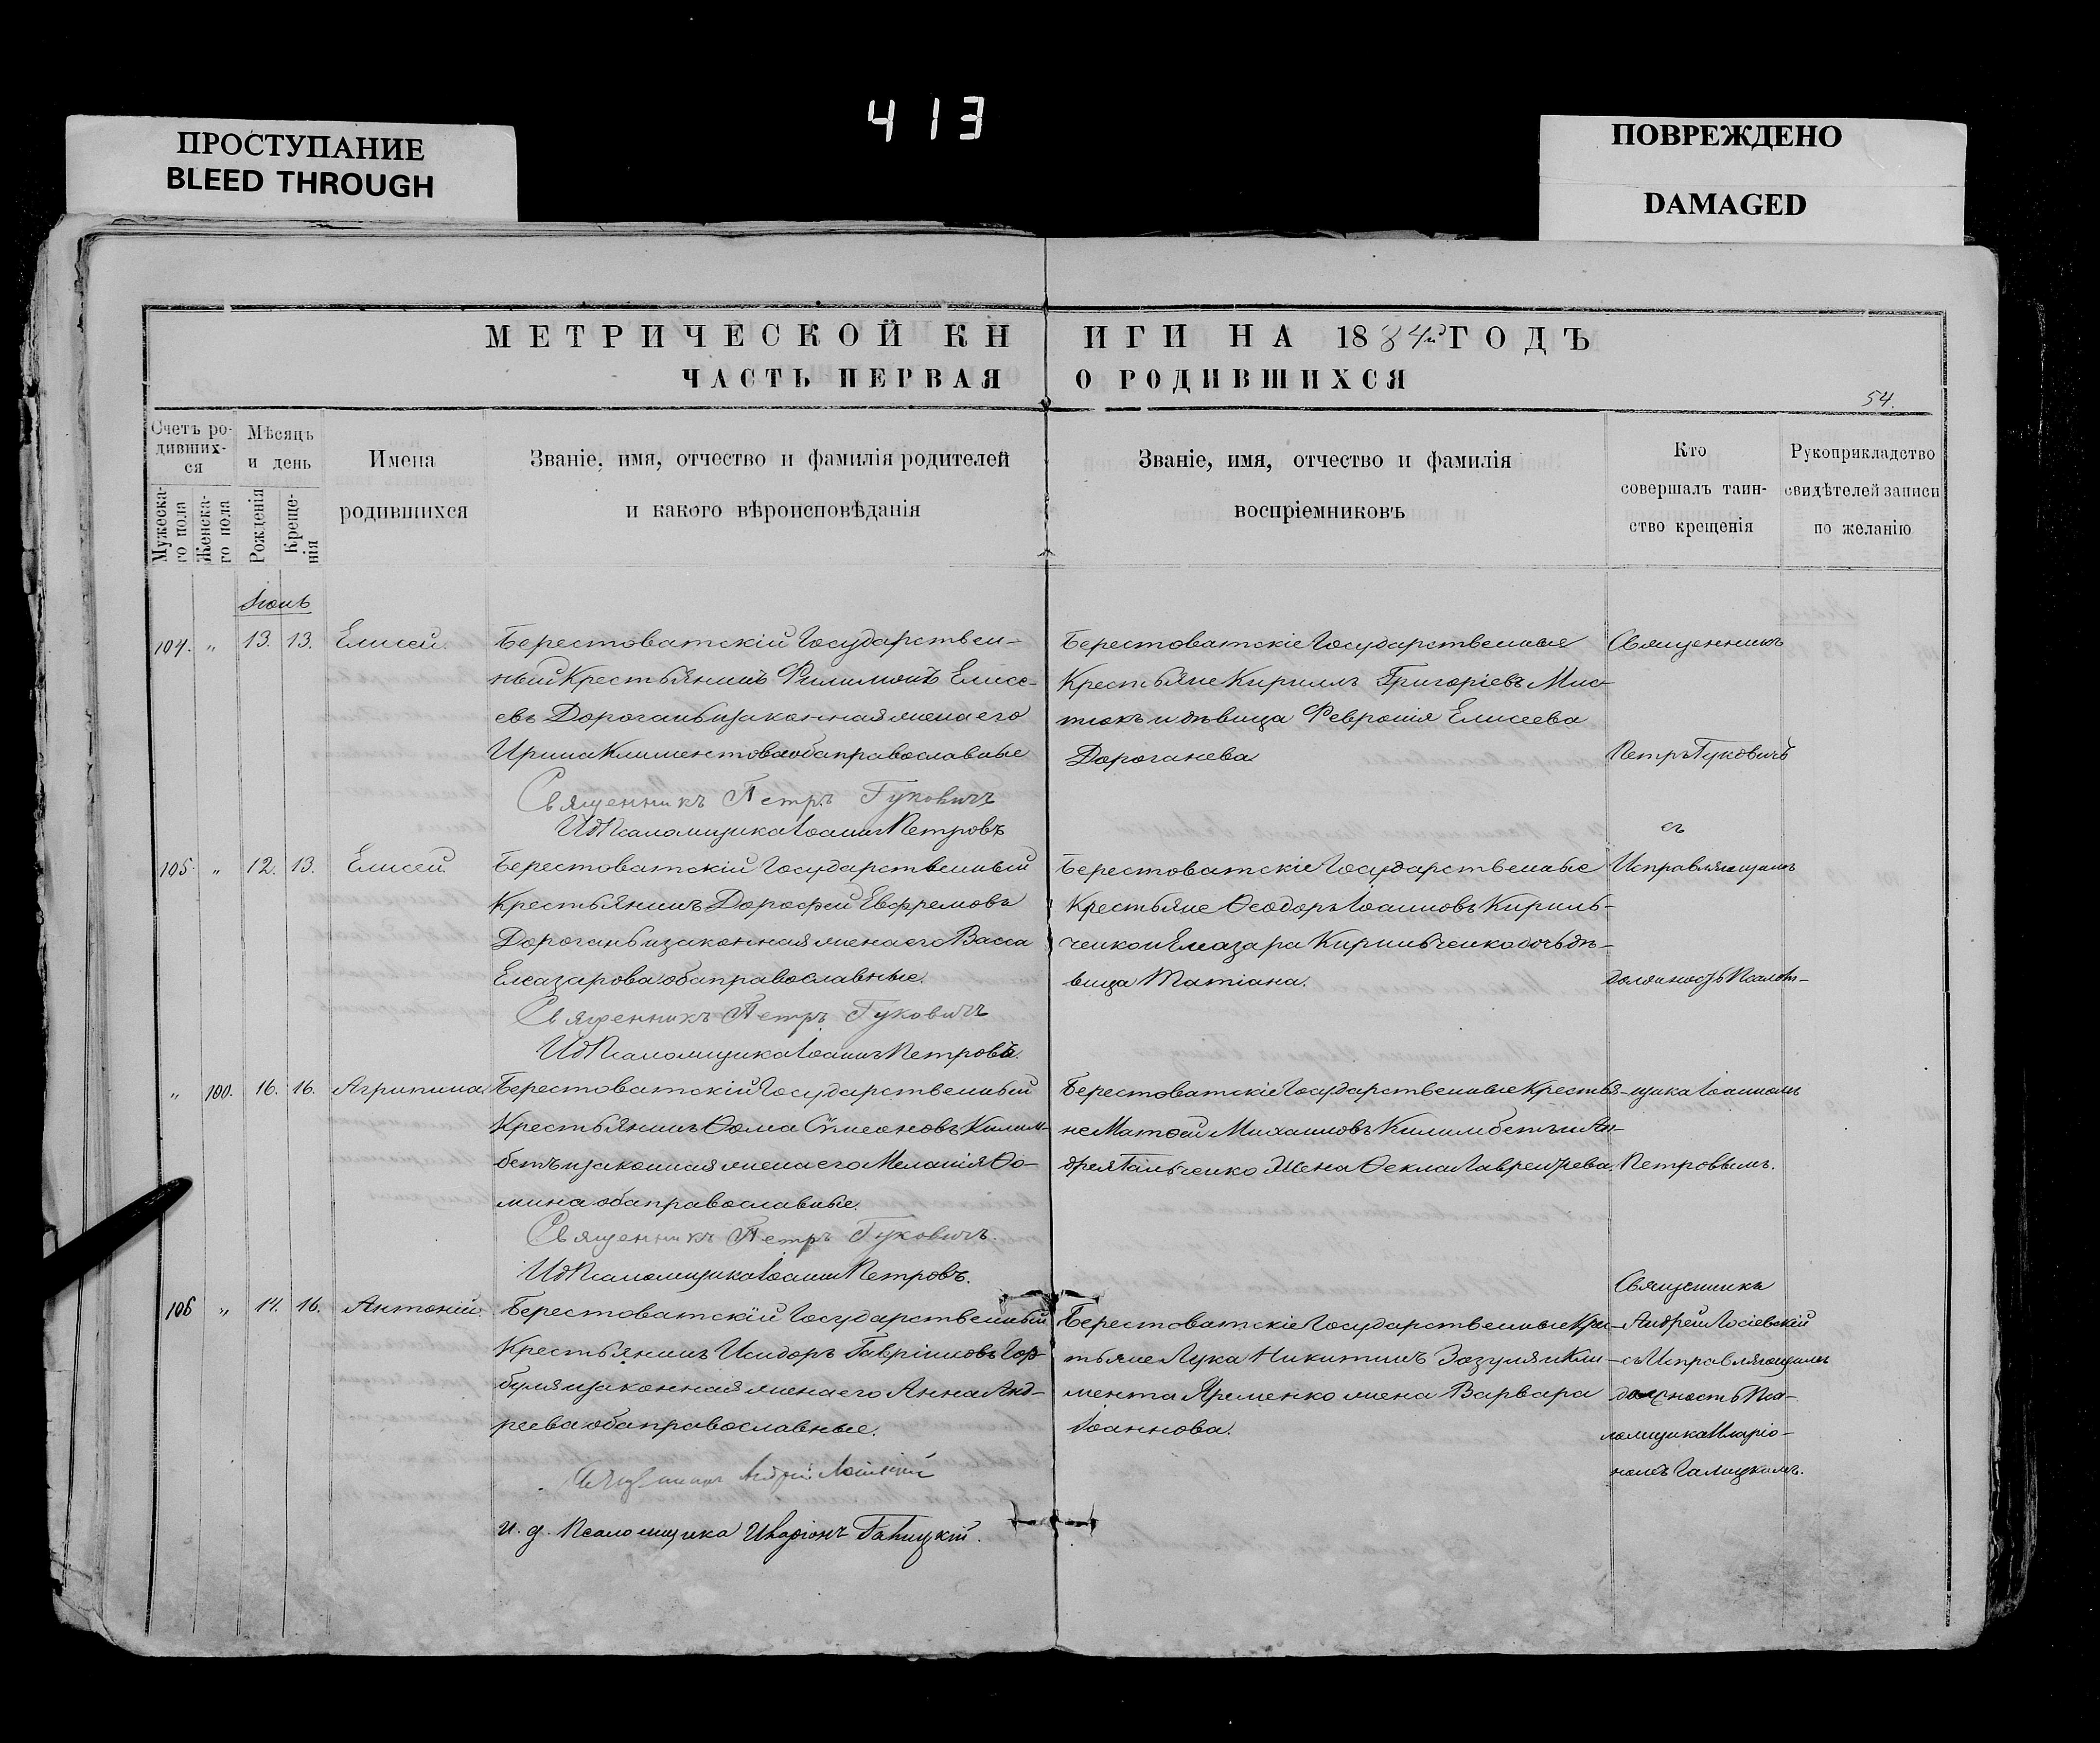 413
ПРОСТУПАНИЕ
BLEED THROUGH
ПОВРЕЖДЕНО
DAMAGED
МЕТРИЧЕСКОЙ КН ИГИ НА 1884й ГОДЪ
ЧАСТЬ ПЕРВАЯ О РОДИВШИХСЯ
54.
Счетъ ро-
дивших-
ся
Мужеска-
го пола
Женска-
го пола
Мѣсяцъ
и день
Рожденія
Креще-
нія
Имена
родившихся
Званіе, имя, отчество и фамилія родителей
и какого вѣроисповѣданія
Званіе, имя, отчество и фамилія
воспріемниковъ
Кто
совершалъ таин-
ство крещенія
Рукоприкладство
свидѣтелей записи
по желанію
104. " 13. 13. Елисей.
Берестоватскій Государствен-
ный Крестьянинъ Филимонъ Елисе-
евъ Дорогань и законная жена его
Ирина Климентова оба православные
Священникъ Петръ Гуковичъ
ИдПсаломщика Іоаннъ Петровъ
Берестоватскіе Государственные
Крестьяне Кириллъ Григоріевъ Мис-
тюкъ и дѣвица Февронія Елисеева
Дороганева
Священникъ
Петръ Гуковичъ
съ
105. " 12. 13. Елисей.
Берестоватскій Государственный
Крестьянинъ Дорофей Евфремовъ
Дорогань и законная жена его Васса
Елеазарова оба православные.
Священникъ Петръ Гуковичъ
ИдПсаломщика Іоаннъ Петровъ.
Берестоватскіе Государственные
Крестьяне Ѳеодоръ Іоанновъ Кириль-
ченко и Елеазара Кирильченко дочь дѣ-
вица Татіана.
Исправляющимъ
должность Псалом-
" 100. 16. 16. Агрипина
Берестоватскій Государственный
Крестьянинъ Ѳома Сѵмеоновъ Килим-
бетъ и законная жена его Меланія Ѳо-
мина оба православные.
Священникъ Петръ Гуковичъ.
ИдПсаломщика Іоаннъ Петровъ.
Берестоватскіе Государственные Крестья-
не Матѳей Михаиловъ Килимбетъ и Ан-
дрея Гальченко жена Ѳекла Лаврентіева.
щика Іоанномъ
Петровымъ.
106 " 14. 16. Антоній.
Берестоватскій Государственный
Крестьянинъ Исидоръ Гавріиловъ Гор-
буля и законная жена его Анна Анд-
реева оба православные.
Священникъ Андрей Лосіевскій
и. д. Псаломщика Иларіонъ Галицкій.
Берестоватскіе Государственные Крес-
тьяне Лука Никитинъ Зазуля и Кли-
мента Яременко жена Варвара
Іоаннова.
Священникъ
Андрей Лосіевскій
съ Исправляющимъ
должность Пса-
ломщика Иларіо-
номъ Галицкимъ.